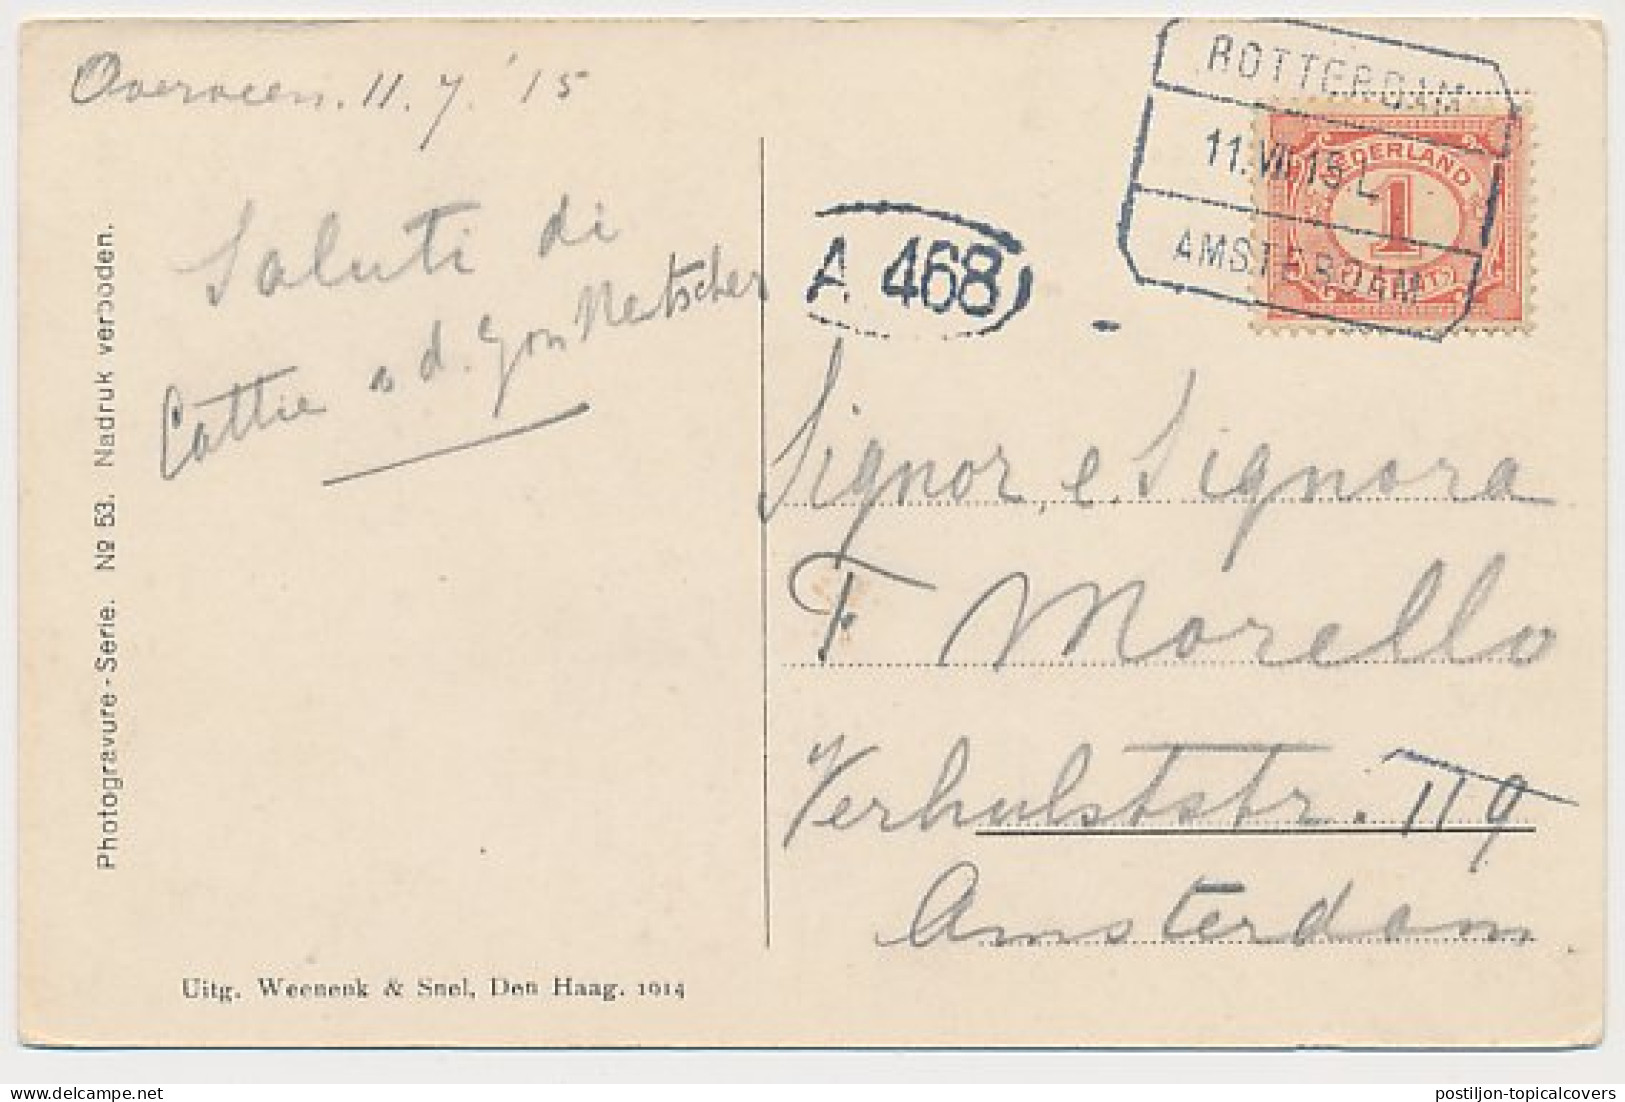 Overveen. 11.7.'15
Saluti di
Cattie d. Netscher
Photogravure-Serie. No 53. Nadruk verboden.
Uitg. Weenenk & Snel, Den Haag. 1914
ROTTERDAM
11.VII.15 L
AMSTERDAM
NEDERLAND
1
A. 468
Signor e Signora
F Morello
Verhulststr. 119
Amsterdam.
postiljon-topicalcovers